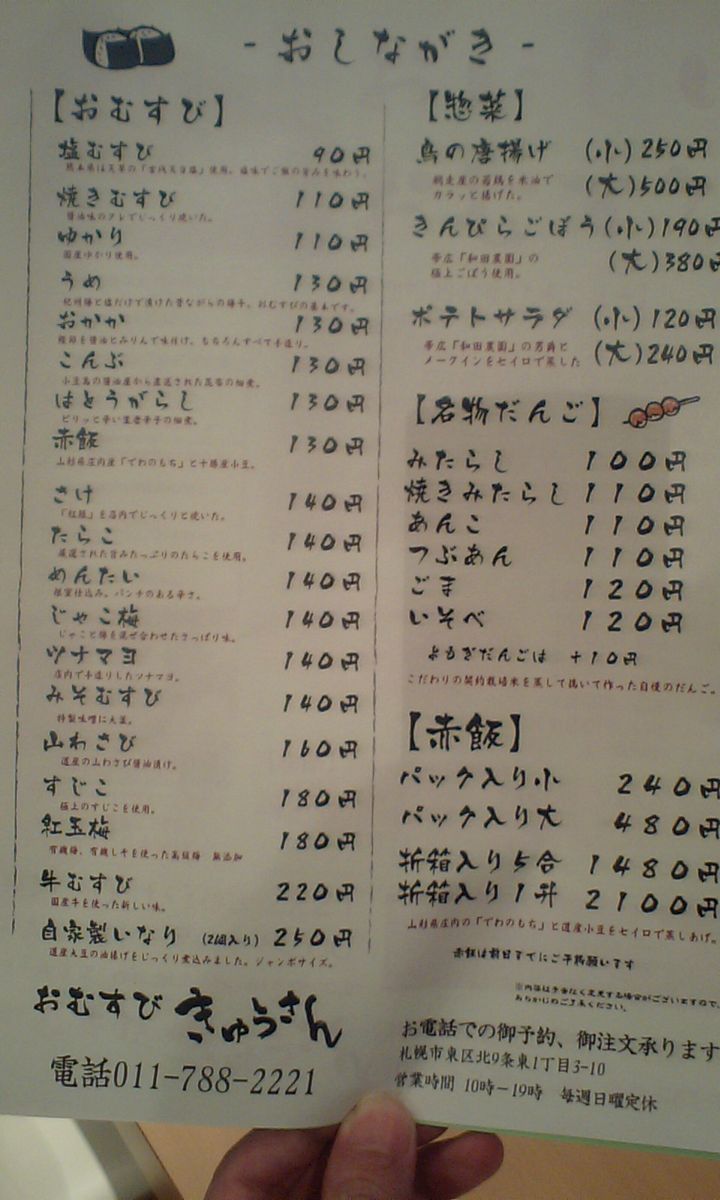 -おしながき-
【おむすび】
塩むすび 90円
焼きむすび 110円
醤油味のタレでじっくり焼いた。
ゆかり 110円
国産ゆかり使用。
うめ 130円
紀州梅と塩だけで漬けた昔ながらの梅干。おむすびの基本です。
おかか 130円
鰹節を醤油とみりんで味付け。もちろんすべて手造り。
こんぶ 130円
小豆島の醤油屋から直送された昆布の佃煮。
はとうがらし 130円
ピリッと辛い葉唐辛子の佃煮。
赤飯 130円
山形県庄内産「でわのもち」と十勝産小豆。
さけ 140円
「紅鮭」を店内でじっくりと焼いた。
たらこ 140円
厳選された旨みたっぷりのたらこを使用。
めんたい 140円
根室仕込み。パンチのある辛さ。
じゃこ梅 140円
じゃこと梅を混ぜ合わせたさっぱり味。
ツナマヨ 140円
店内で手造りしたツナマヨ。
みそむすび 140円
特製味噌に大葉。
山わさび 160円
道産の山わさび醤油漬け。
すじこ 180円
極上のすじこを使用。
紅玉梅 180円
有機梅、有機しそを使った高級梅 無添加
牛むすび 220円
国産牛を使った新しい味。
自家製いなり (2個入り) 250円
道産大豆の油揚げをじっくり煮込みました。ジャンボサイズ。
おむすび きゅうさん
電話011-788-2221
【惣菜】
鳥の唐揚げ (小)250円
網走産の若鶏を米油で
カラッと揚げた。 (大)500円
きんぴらごぼう(小)190円
帯広「和田農園」の
極上ごぼう使用。 (大)380円
ポテトサラダ (小)120円
帯広「和田農園」の男爵と
メークインをセイロで蒸した (大)240円
【名物だんご】
みたらし 100円
焼きみたらし 110円
あんこ 110円
つぶあん 110円
ごま 120円
いそべ 120円
よもぎだんごは +10円
こだわりの契約栽培米を蒸して搗いて作った自慢のだんご。
【赤飯】
パック入り小 240円
パック入り大 480円
折箱入り5合 1480円
折箱入り1升 2100円
山形県庄内の「でわのもち」と道産小豆をセイロで蒸しあげ。
赤飯は前日までにご予約願います
※内容は予告なく変更する場合がございますので、
あらかじめご了承ください。
お電話での御予約、御注文承ります
札幌市東区北9条東1丁目3-10
営業時間 10時-19時 毎週日曜定休